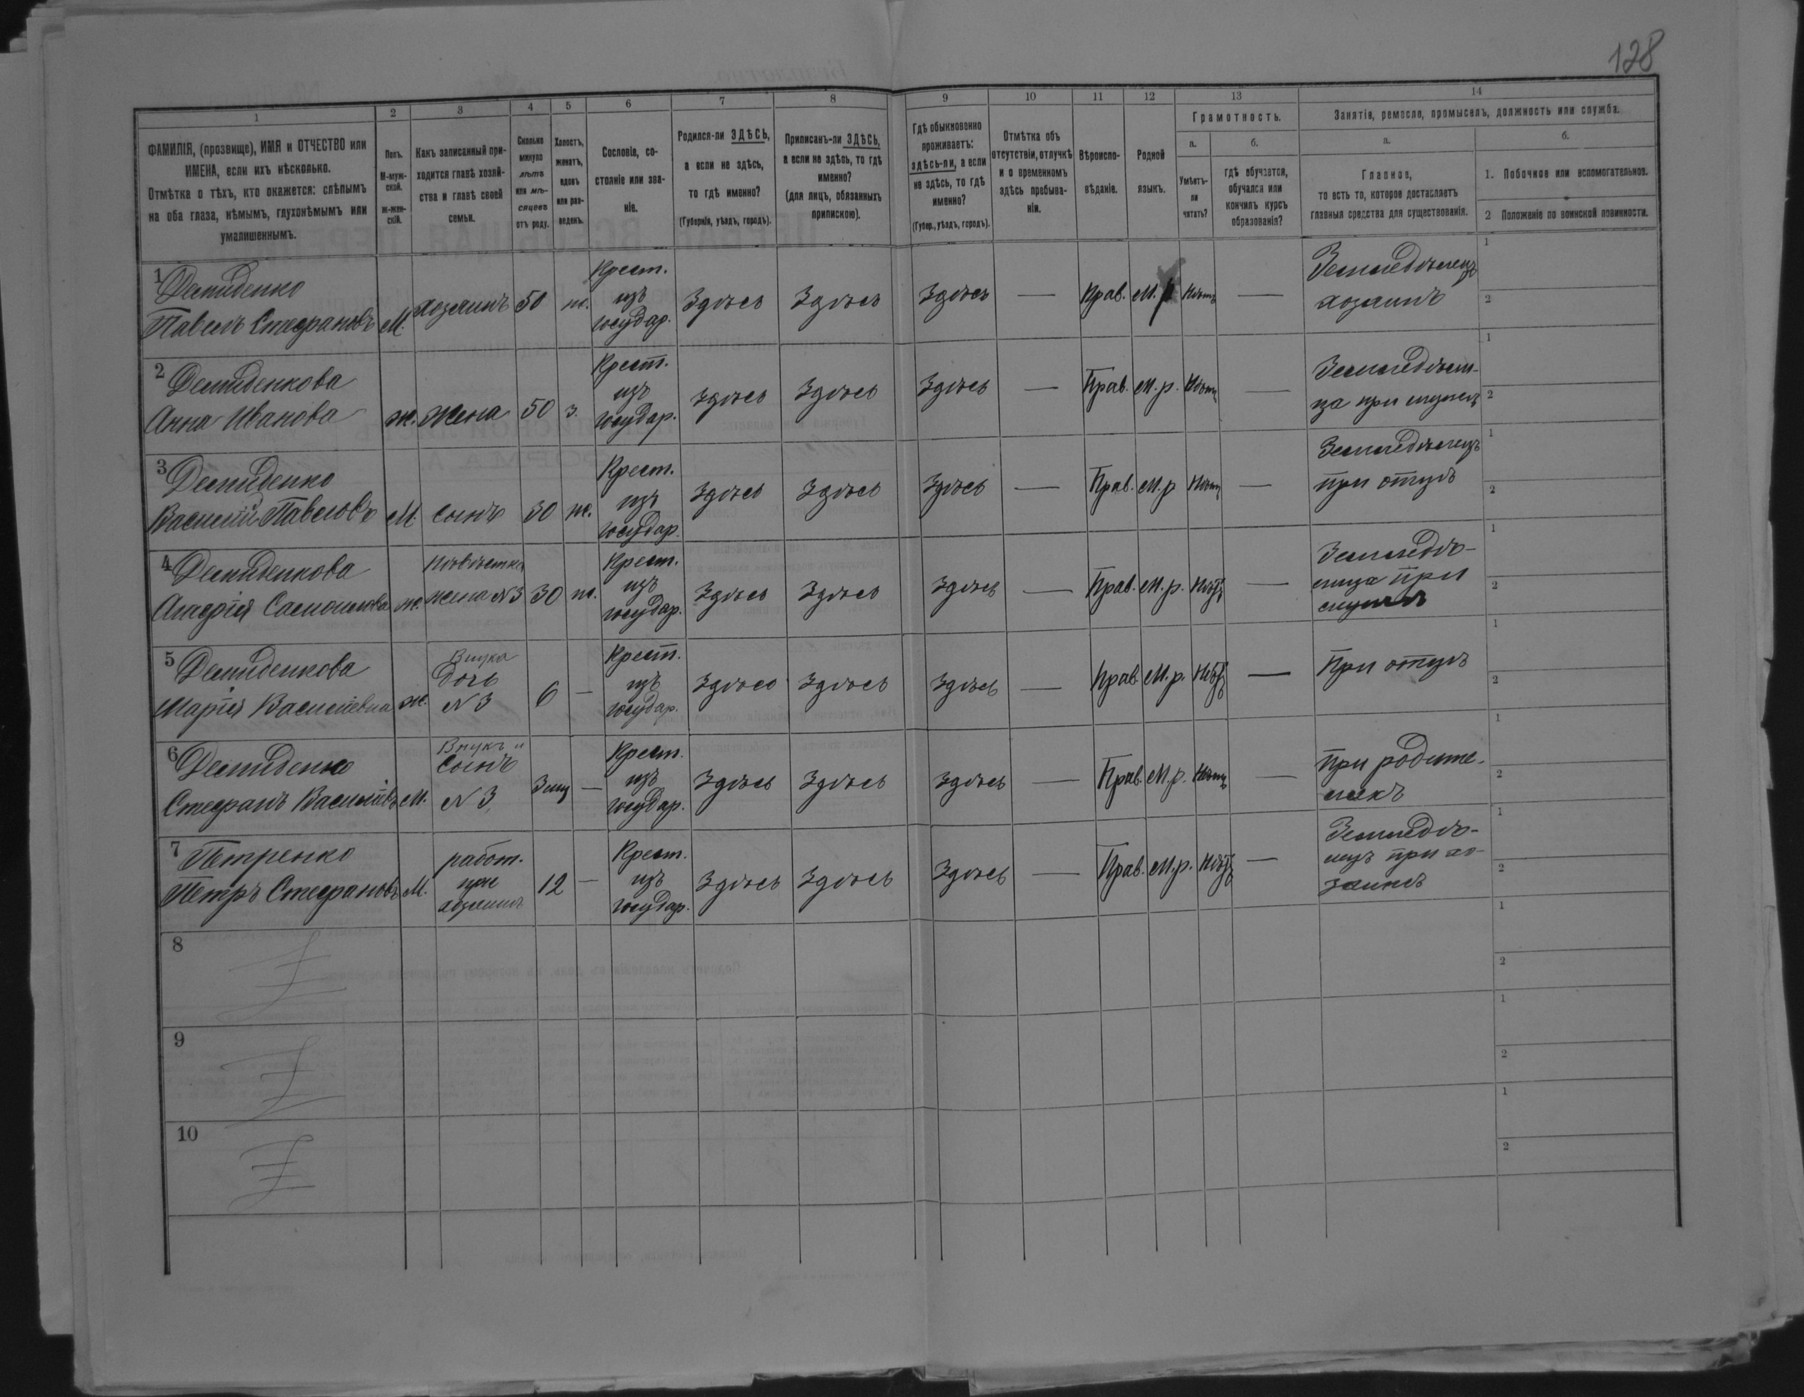 128
1 2 3 4 5 6 7 8 9 10 11 12 13 14
ФАМИЛІЯ, (прозвище), ИМЯ и ОТЧЕСТВО или
ИМЕНА, если ихъ нѣсколько.
Отмѣтка о тѣхъ, кто окажется: слѣпымъ
на оба глаза, нѣмымъ, глухонѣмымъ или
умалишеннымъ.
Полъ.
М-муж-
ской.
ж-жен-
скій.
Какъ записанный при-
ходится главѣ хозяй-
ства и главѣ своей
семьи.
Сколько
минуло
лѣтъ
или мѣ-
сяцевъ
отъ роду.
Холостъ,
женатъ,
вдовъ
или раз-
веденъ.
Сословіе, со-
стояніе или зва-
ніе.
Родился-ли ЗДѢСЬ,
а если не здѣсь,
то гдѣ именно?
(Губернія, уѣздъ, городъ).
Приписанъ-ли ЗДѢСЬ,
а если не здѣсь, то гдѣ
именно?
(для лицъ, обязанныхъ
припискою).
Гдѣ обыкновенно
проживаетъ:
здѣсь-ли, а если
не здѣсь, то гдѣ
именно?
(Губер., уѣздъ, городъ).
Отмѣтка объ
отсутствіи, отлучкѣ
и о временномъ
здѣсь пребыва-
ніи.
Вѣроиспо-
вѣданіе.
Родной
языкъ.
Грамотность.
а.
Умѣетъ-
ли
читать?
б.
гдѣ обучается,
обучался или
кончилъ курсъ
образованія?
Занятіе, ремесло, промыселъ, должность или служба.
а.
Главное,
то есть то, которое доставляетъ
главныя средства для существованія.
б.
1. Побочное или вспомогательное.
2 Положеніе по воинской повинности.
1 Демиденко
Павелъ Стефановъ М. хозяинъ 50 ж. Крест. изъ государ. Здѣсь Здѣсь Здѣсь — Прав. М.р. Нѣтъ — Земледѣлецъ хозяинъ 1 2
2 Демиденкова
Анна Иванова ж. Жена 50 з. Крест. изъ государ. Здѣсь Здѣсь Здѣсь — Прав. М.р. Нѣтъ — Земледѣли- ца при мужѣ 1 2
3 Демиденко
Василій Павловъ М сынъ 30 ж. Крест. изъ государ. Здѣсь Здѣсь Здѣсь — Прав. М.р Нѣтъ — Земледѣлецъ при отцѣ 1 2
4 Демиденкова
Самойлова ж. Невѣстка жена №3 30 ж. Крест. изъ государ. Здѣсь Здѣсь Здѣсь — Прав. М.р. Нѣтъ — Земледѣ- лица при мужѣ 1 2
5 Демиденкова
Марія Василіевна ж. Внука Дочь №3 6 — Крест. изъ государ. Здѣсь Здѣсь Здѣсь — Прав М.р. Нѣтъ — При отцѣ 1 2
6 Демиденко
Стефанъ Василіевъ М. Внукъ и Сынъ №3 — Крест. изъ государ. Здѣсь Здѣсь Здѣсь — Прав. М.р. Нѣтъ — При родите- ляхъ 1 2
7 Петренко
Петръ Стефановъ М. работ. при хозяинѣ 12 — Крест. изъ государ. Здѣсь Здѣсь Здѣсь — Прав. М.р. Нѣтъ — Земледѣ- лецъ при хо- зяинѣ 1 2
8 1 2
9 1 2
10 1 2